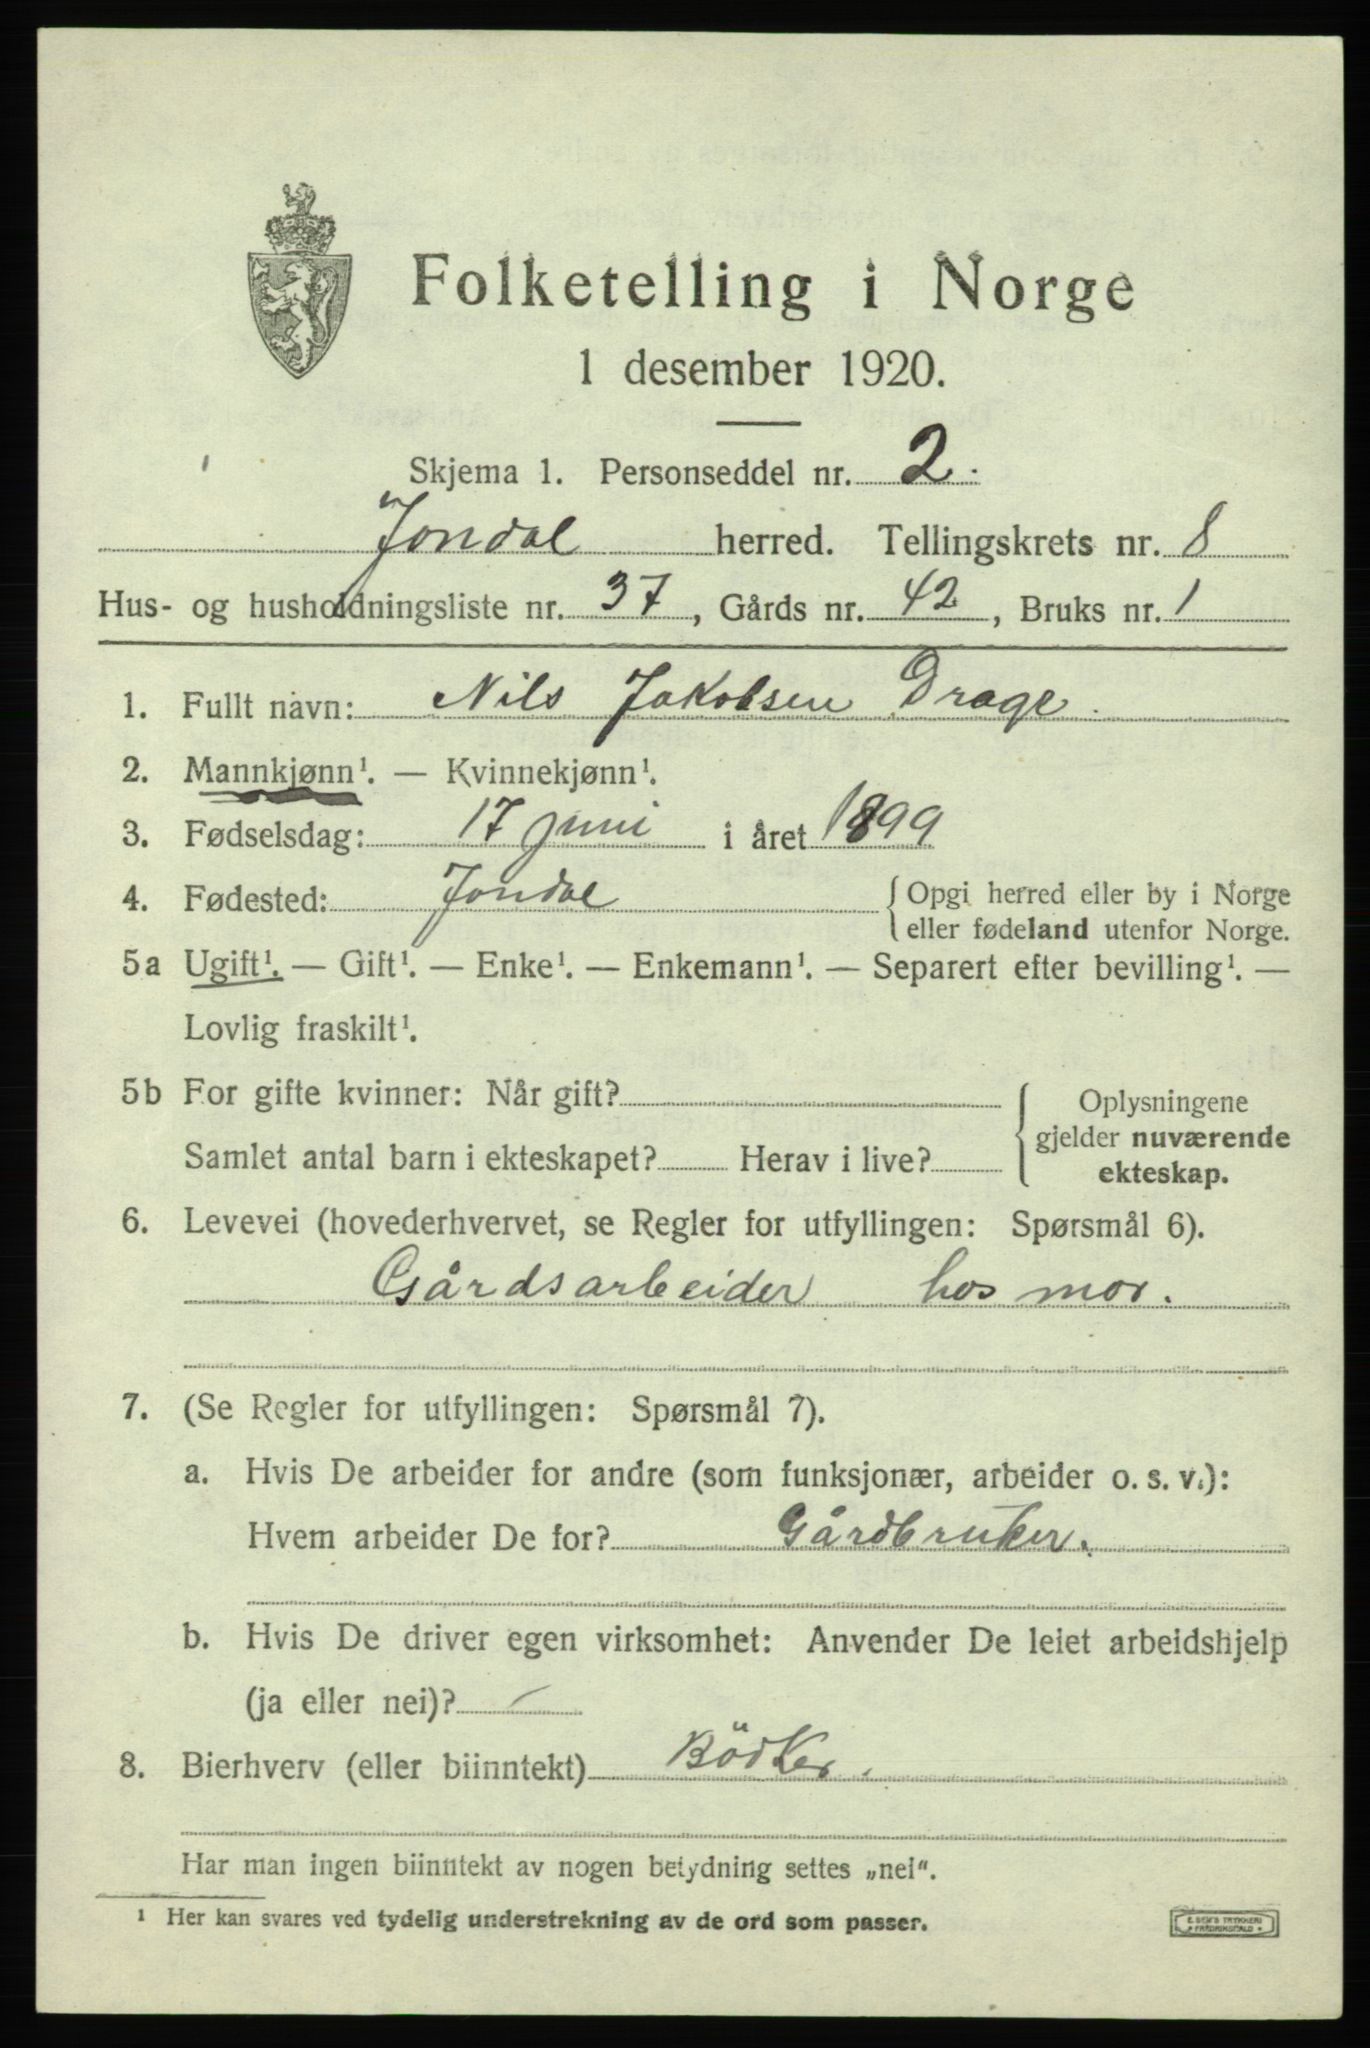 Folketelling i Norge
1 desember 1920.
Skjema 1. Personseddel nr. 2.
Jondal herred. Tellingskrets nr. 8
Hus- og husholdningsliste nr. 37, Gårds nr. 42, Bruks nr. 1
1. Fullt navn: Nils Jakobsen Drage.
2. Mannkjønn¹. — Kvinnekjønn¹.
3. Fødselsdag: 17 juni i året 1899
4. Fødested: Jondal { Opgi herred eller by i Norge
eller fødeland utenfor Norge.
5a Ugift¹. — Gift¹. — Enke¹. — Enkemann¹. — Separert efter bevilling¹. —
Lovlig fraskilt¹.
5b For gifte kvinner: Når gift? { Oplysningene
gjelder nuværende
Samlet antal barn i ekteskapet? Herav i live? ekteskap.
6. Levevei (hovederhvervet, se Regler for utfyllingen: Spørsmål 6).
Gårdsarbeider hos mor.
7. (Se Regler for utfyllingen: Spørsmål 7).
a. Hvis De arbeider for andre (som funksjonær, arbeider o. s. v.):
Hvem arbeider De for? Gårdbruker.
b. Hvis De driver egen virksomhet: Anvender De leiet arbeidshjelp
(ja eller nei)? —
8. Bierhverv (eller biinntekt) Bödker.
Har man ingen biinntekt av nogen betydning settes „nei“.
¹ Her kan svares ved tydelig understrekning av de ord som passer.
E. SEM'S TRYKKERI
FREDRIKSHALD